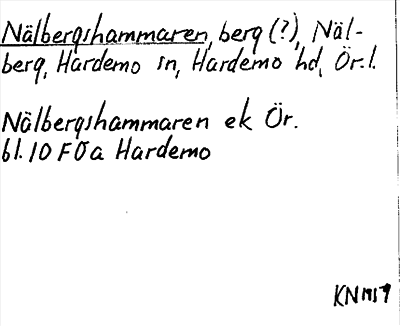 Nälbergshammaren, berg (?), Näl-
berg, Hardemo sn, Hardemo hd, Ör. l.
Nälbergshammaren ek Ör.
bl. 10 FÖa Hardemo
KN